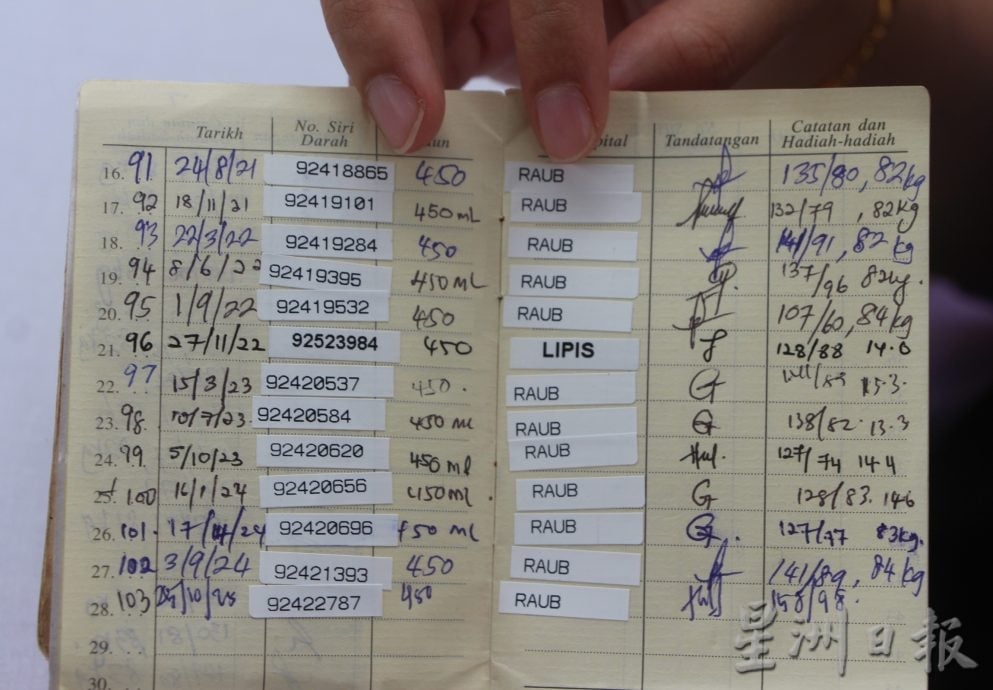 Tarikh No. Siri Darah Tandatangan Catatan dan Hadiah-hadiah
16. 91 24/8/21 92418865 450 RAUB 135/80, 82kg
17. 92 18/11/21 92419101 450mL RAUB 132/79, 82kg
18. 93 22/3/22 92419284 450 RAUB 141/91, 82kg
19. 94 8/6/22 92419395 450mL RAUB 137/96 82kg.
20. 95 1/9/22 92419532 450 RAUB 107/60, 84kg
21. 96 27/11/22 92523984 450 LIPIS 128/88 14.0
22. 97 15/3/23 92420537 450. RAUB 13.3.
23. 98. 10/7/23. 92420584 450 ml RAUB 138/82. 13.3
24. 99 5/10/23 92420620 450 ml RAUB 127/74 14.4
25. 100 92420656 450ml. RAUB 128/83. 14.6
26. 101. 92420696 450 ML RAUB 127/77 83kg.
27. 102 3/9/24 92421393 450 RAUB 141/89, 84kg
28. 103 92422787 450 RAUB 158/98.
29.
30.
星洲日報